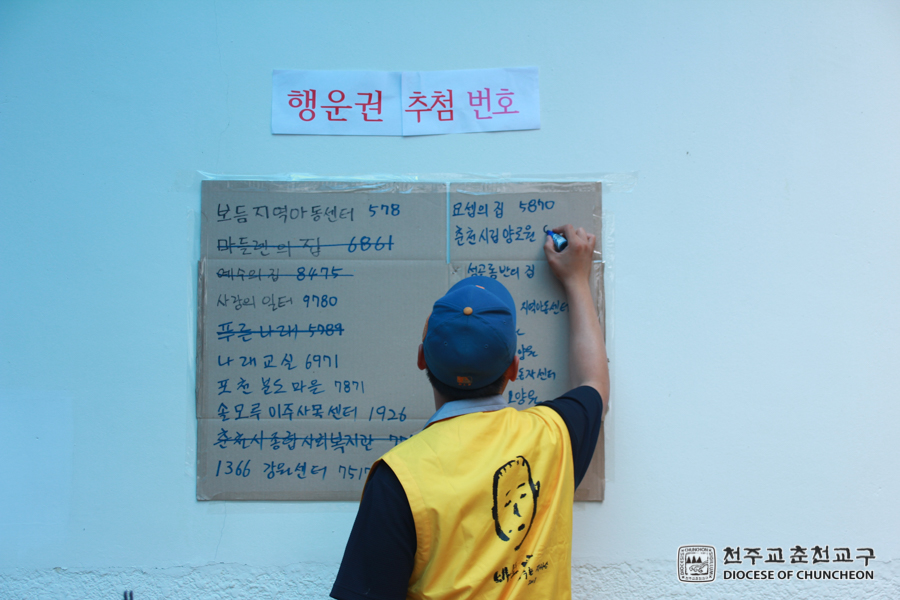 행운권 추첨 번호
보듬지역아동센터 578
마들렌의 집 6861
예수의 집 8475
사랑의 일터 9780
푸른나래 5789
나래교실 6971
포천 분도마을 7871
솔모루 이주사목센터 1926
춘천시종합사회복지관
1366 강원센터 7517
요셉의 집 5870
춘천시립양로원
의 집
지역아동센터
센터
천주교춘천교구
DIOCESE OF CHUNCHEON